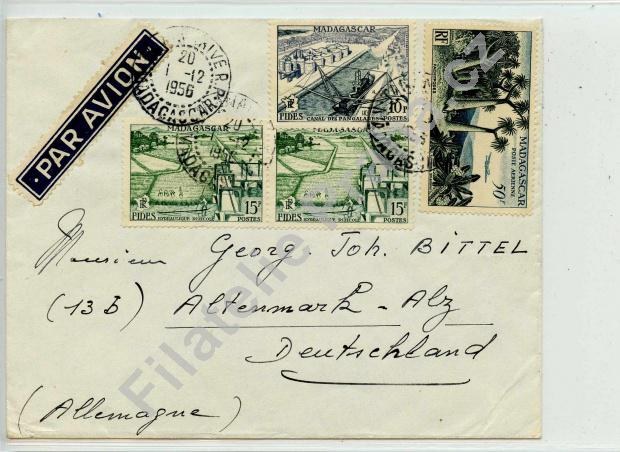 PAR AVION
20
1-12
1956
MADAGASCAR
MADAGASCAR
RF
FIDES
CANAL DES PANGALANES
POSTES
10F
MADAGASCAR
RF
FIDES
HYDRAULIQUE AGRICOLE
POSTES
15F
MADAGASCAR
RF
FIDES
HYDRAULIQUE AGRICOLE
POSTES
15F
RF
MADAGASCAR
POSTE AERIENNE
50F
Monsieur Georg. Joh. BITTEL
(13b) Altenmark - Alz
Deutschland
(Allemagne)